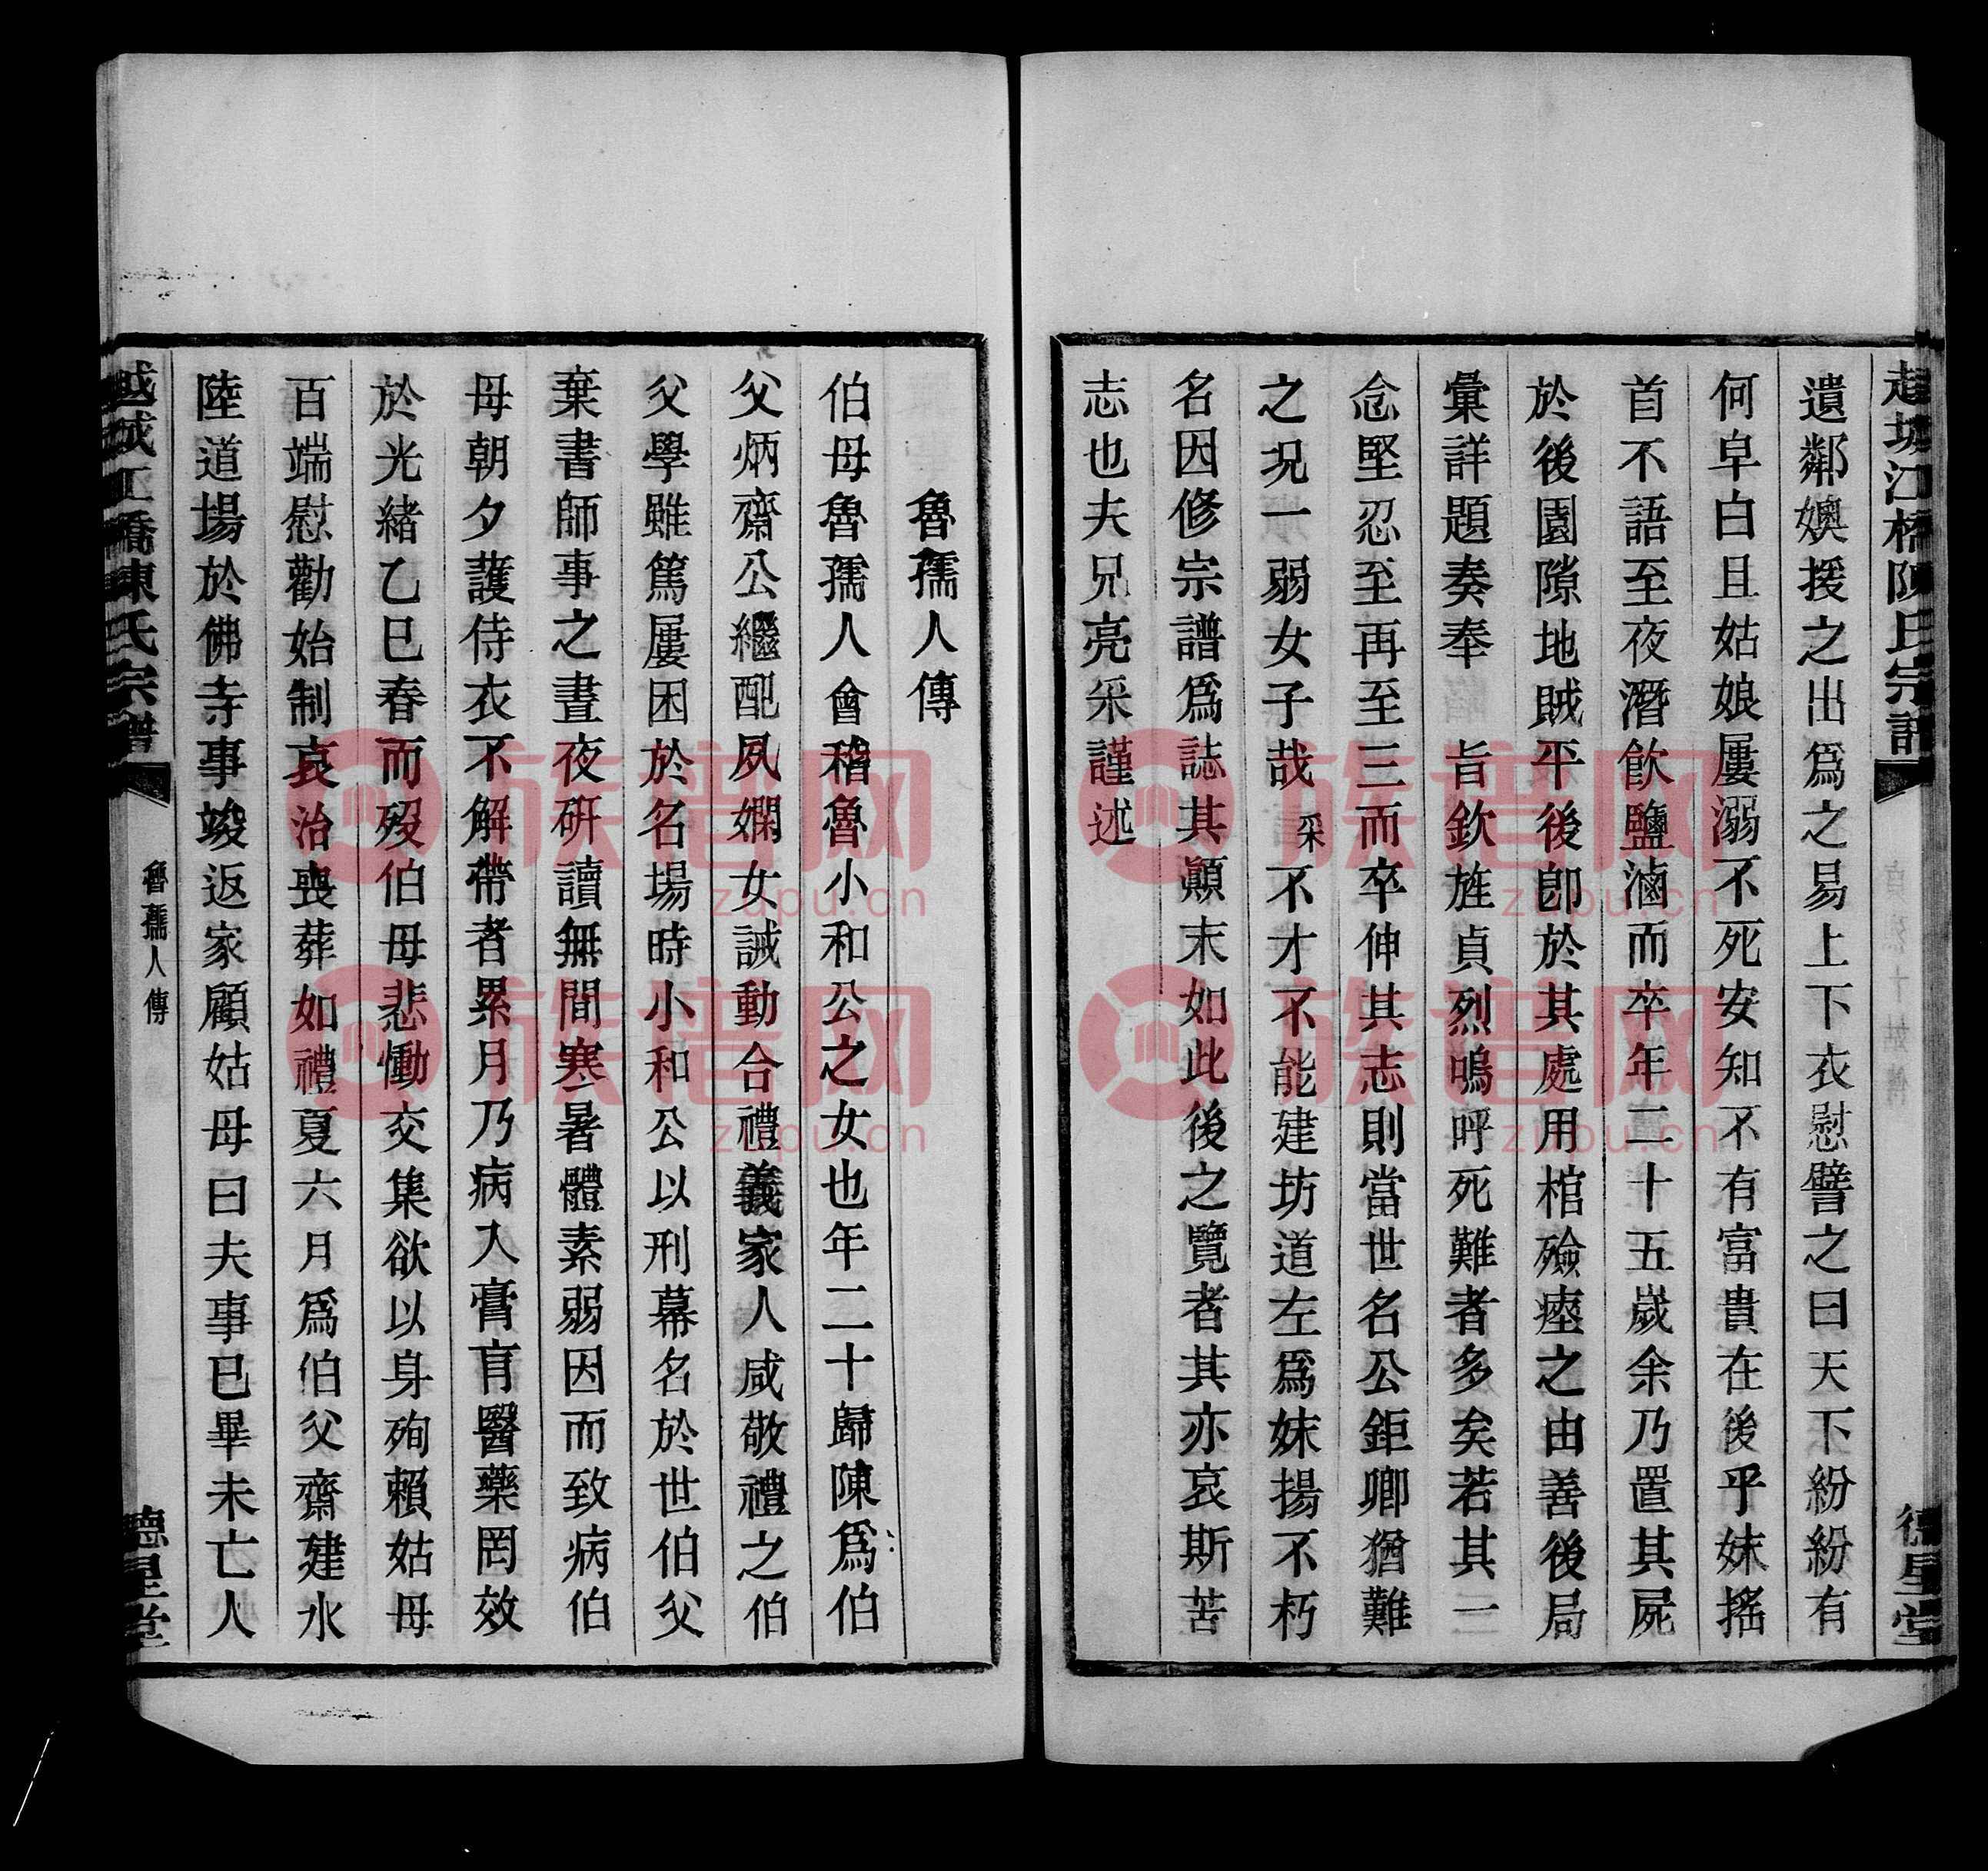 越城江橋陳氏宗譜
德星堂
遺鄰媼援之出爲之易上下衣慰譬之曰天下紛紛有
何皁白且姑娘屢溺不死安知不有富貴在後乎妹搖
首不語至夜潛飲鹽滷而卒年二十五歲余乃置其屍
於後園隙地賊平後卽於其處用棺殮瘞之由善後局
彙詳題奏奉 旨欽旌貞烈嗚呼死難者多矣若其一
念堅忍至再至三而卒伸其志則當世名公鉅卿猶難
之况一弱女子哉采不才不能建坊道左爲妹揚不朽
名因修宗譜爲誌其顚末如此後之覽者其亦哀斯苦
志也夫兄亮采謹述
魯孺人傳
伯母魯孺人會稽魯小和公之女也年二十歸陳爲伯
父炳齋公繼配夙嫻女誡動合禮義家人咸敬禮之伯
父學雖篤屢困於名場時小和公以刑幕名於世伯父
棄書師事之晝夜研讀無間寒暑體素弱因而致病伯
母朝夕護侍衣不解帶者累月乃病入膏肓醫藥罔效
於光緒乙巳春而歿伯母悲慟交集欲以身殉賴姑母
百端慰勸始制哀治喪葬如禮夏六月爲伯父齋建水
陸道場於佛寺事竣返家顧姑母曰夫事已畢未亡人
越城江橋陳氏宗譜
魯孺人傳
德星堂
族譜网
zupu.cn
族譜网
zupu.cn
族譜网
zupu.cn
族譜网
zupu.cn